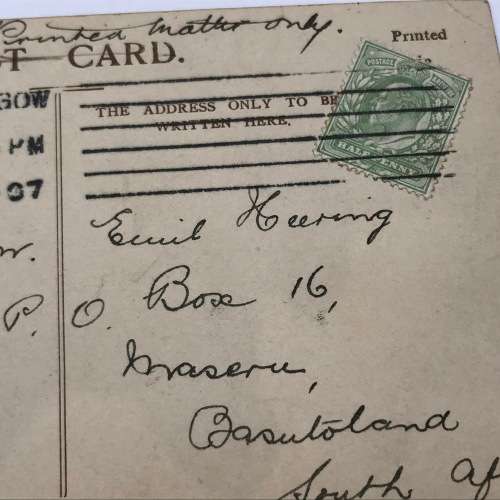 Printed matter only.
T CARD.
Printed
GOW
PM
07
THE ADDRESS ONLY TO BE
WRITTEN HERE.
POSTAGE
HALFPENNY
Emil Heering
P. O. Box 16,
Maseru,
Basutoland
South Af